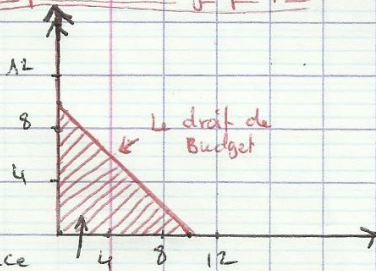 12
8
4
Le droit de
Budget
4 8 12